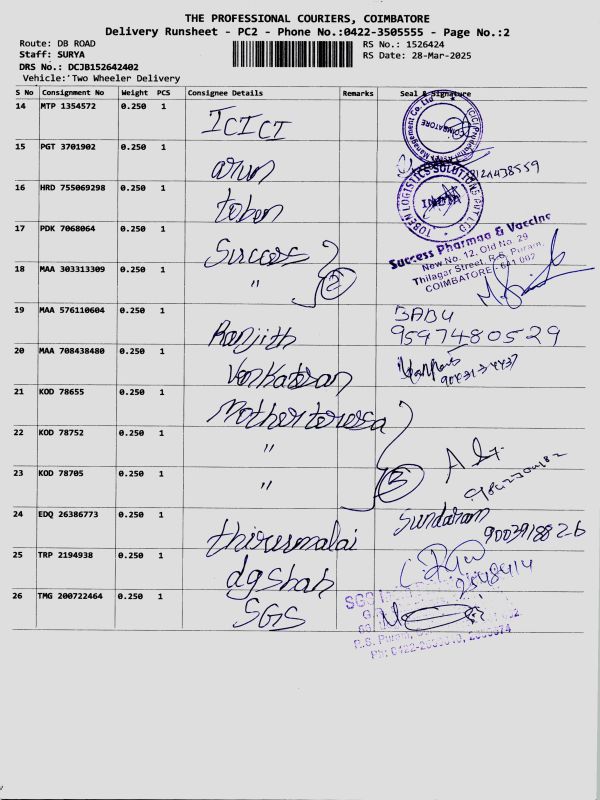 THE PROFESSIONAL COURIERS, COIMBATORE
Delivery Runsheet - PC2 - Phone No.:0422-3505555 - Page No.:2
Route: DB ROAD
RS No.: 1526424
Staff: SURYA
RS Date: 28-Mar-2025
DRS No.: DCJB152642402
Vehicle: Two Wheeler Delivery
S No Consignment No Weight PCS Consignee Details Remarks Seal & Signature
14 MTP 1354572 0.250 1 ICICI
COIMBATORE
15 PGT 3701902 0.250 1 arun
16 HRD 755069298 0.250 1 toben
TOBEN LOGISTICS SOLUTIONS PVT LTD
INDIA
17 PDK 7068064 0.250 1 Success
Success Pharmaa & Vaccine
New No. 12, Old No. 29
Thilagar Street, R.S. Puram,
COIMBATORE - 641 002
18 MAA 303313309 0.250 1 "
2
19 MAA 576110604 0.250 1 Ranjith
BABU
9597480529
20 MAA 708438480 0.250 1 Venkatesan
21 KOD 78655 0.250 1 Mother teresa
22 KOD 78752 0.250 1 "
23 KOD 78705 0.250 1 "
3
24 EDQ 26386773 0.250 1 thirumalai
Sundaram
9003918826
25 TRP 2194938 0.250 1 dg shah
2548414
26 TMG 200722464 0.250 1 SGS
SGS
R.S. Puram,